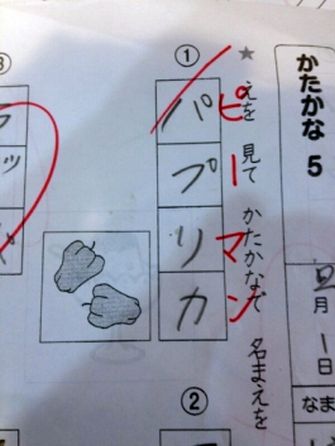 かたかな 5
月 1日
なま
★ えを 見て かたかなで 名まえを
①
パプリカ
ピーマン
②